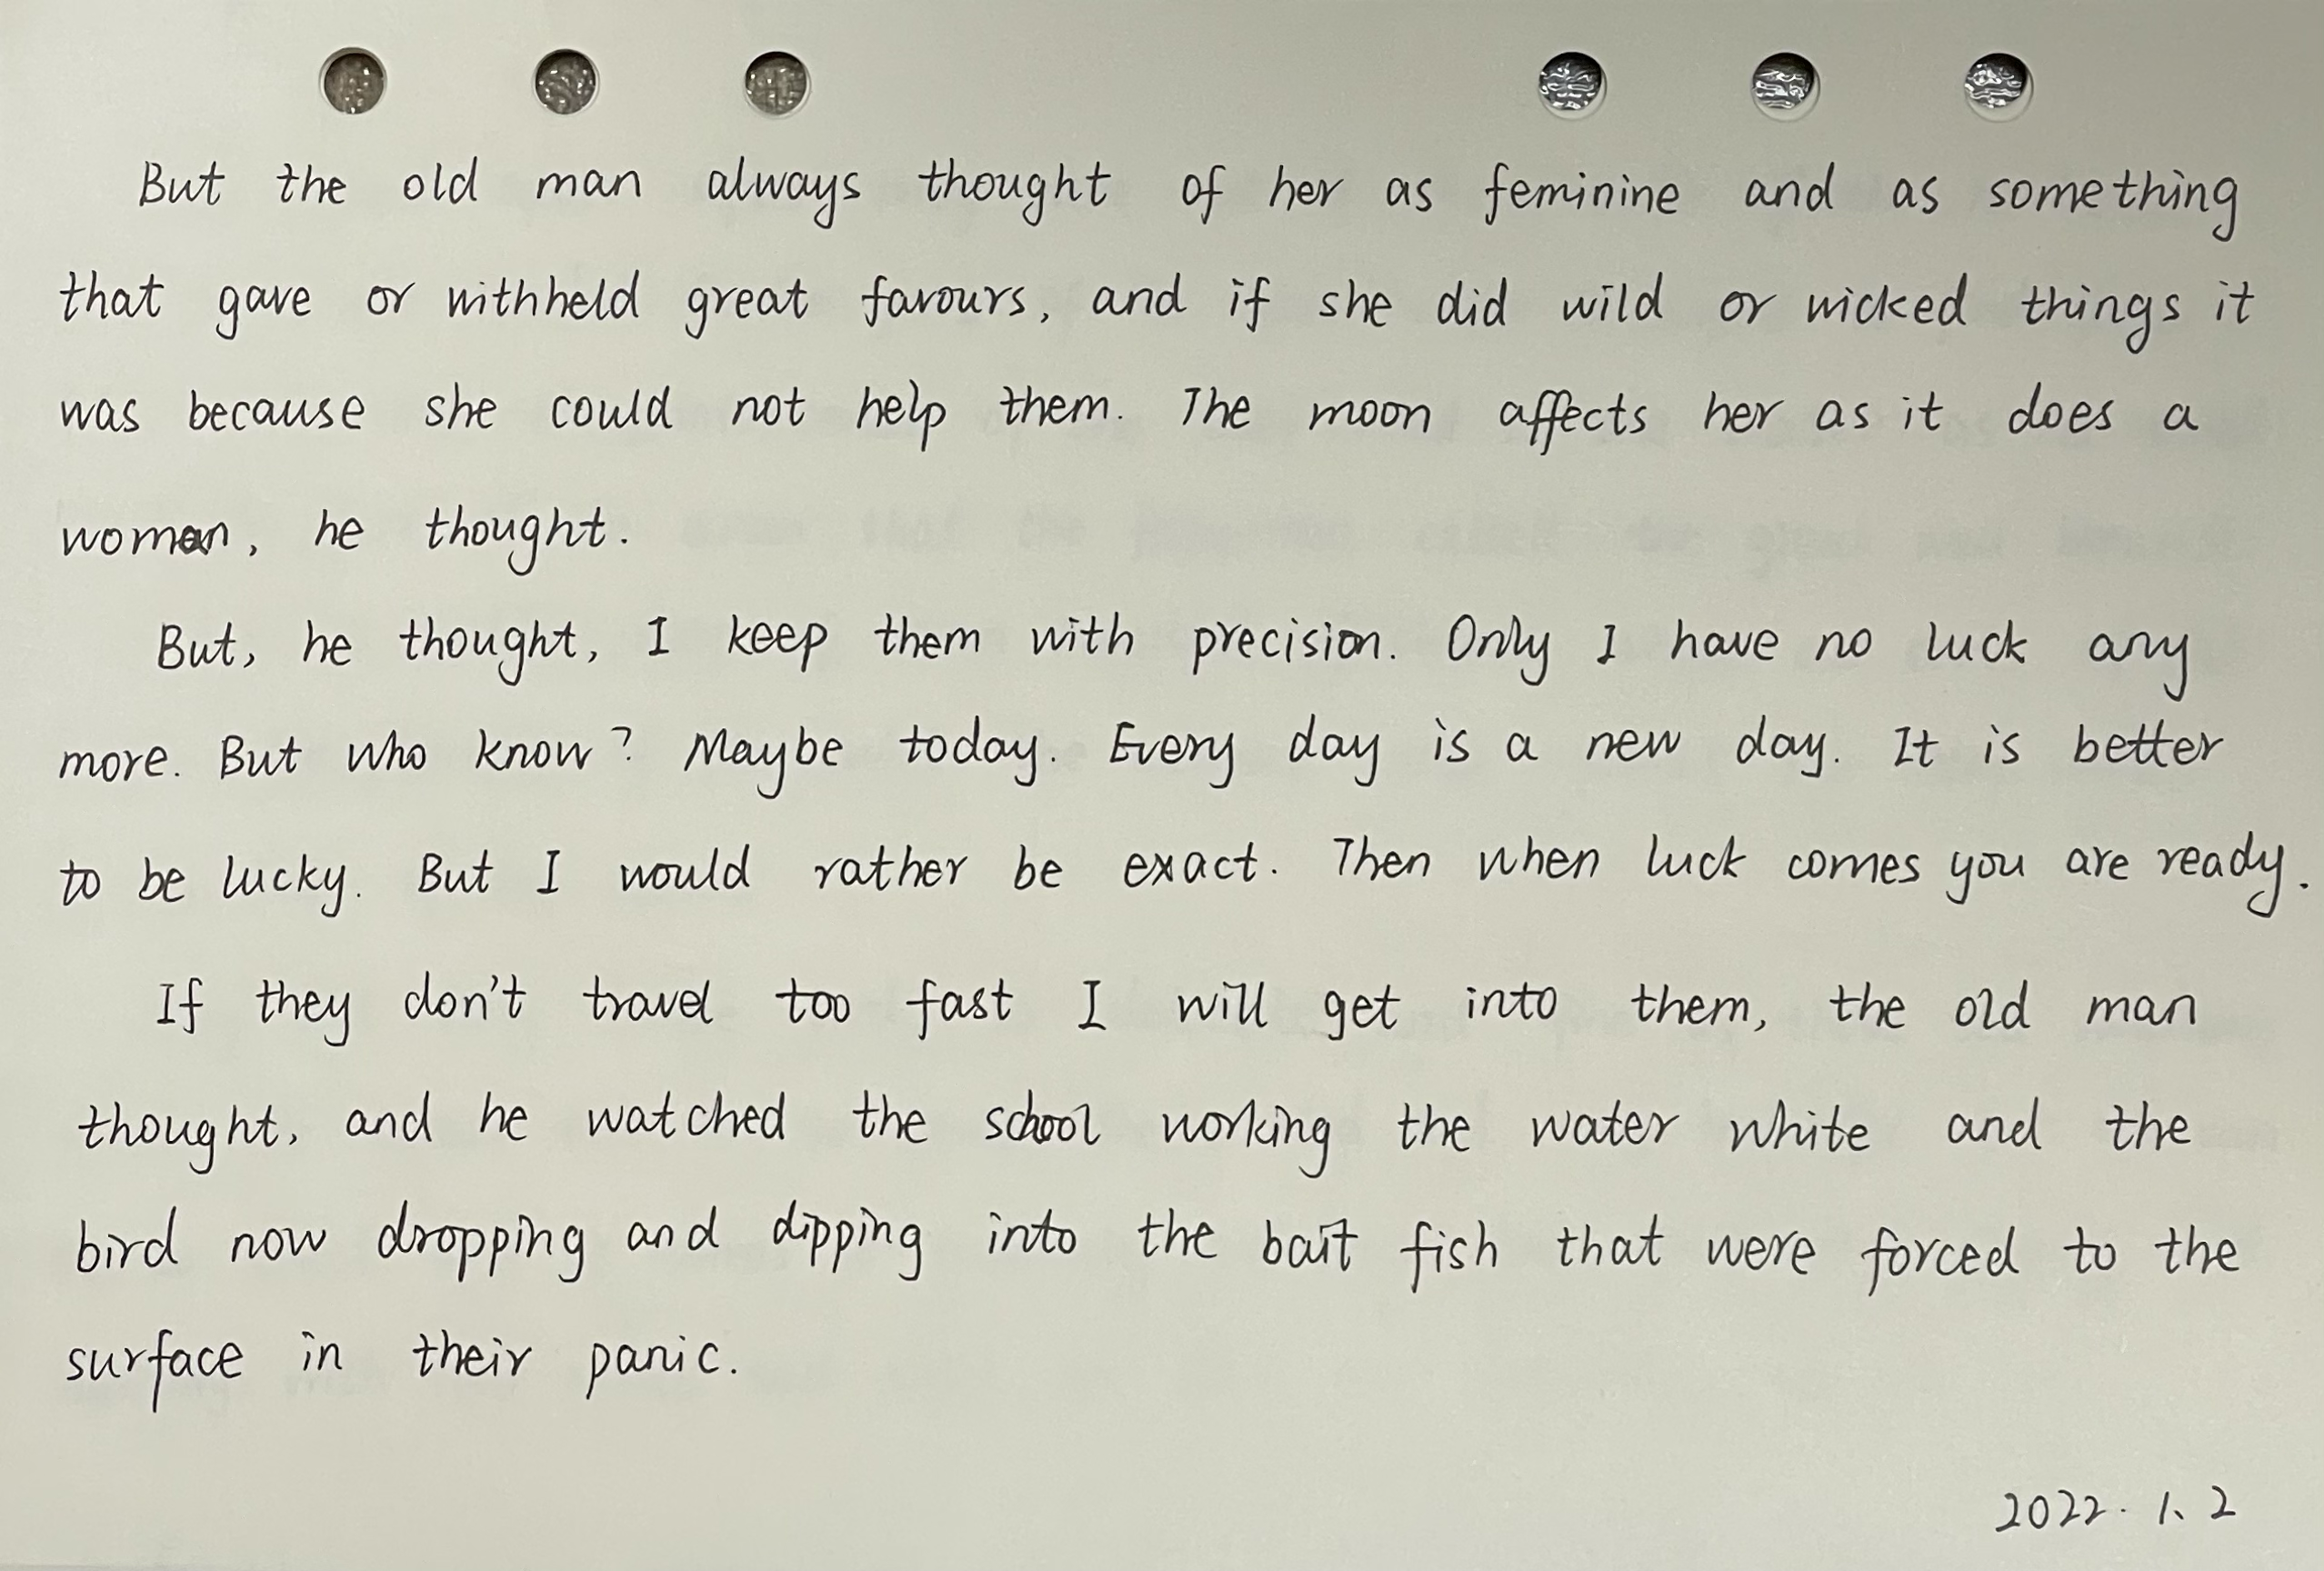 But the old man always thought of her as feminine and as something
that gave or withheld great favours, and if she did wild or wicked things it
was because she could not help them. The moon affects her as it does a
woman, he thought.
But, he thought, I keep them with precision. Only I have no luck any
more. But who know? Maybe today. Every day is a new day. It is better
to be lucky. But I would rather be exact. Then when luck comes you are ready.
If they don't travel too fast I will get into them, the old man
thought, and he watched the school working the water white and the
bird now dropping and dipping into the bait fish that were forced to the
surface in their panic.
2022.1.2